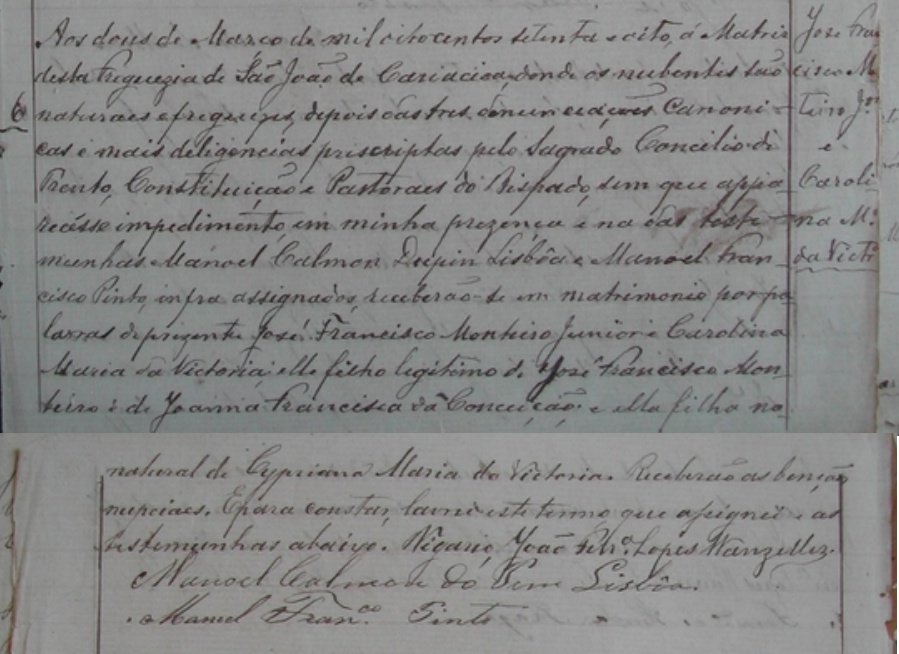 Aos dous de Março de mil oito centos setenta e oito, á Matriz
desta Freguezia de São João de Cariacica, donde os nubentes são
naturaes e freguezes, depois das tres denunciações Canoni-
cas e mais deligencias priscriptas pelo Sagrado Concilio di
Trento, Constituição e Pastoraes do Bispado, sem que appa-
recêsse impedimento, em minha prezença e na das teste-
munhas Manoel Calmon Lisbôa e Manoel Fran-
cisco Pinto, infra assignados, receberão-se em matrimonio por pa-
lavras de prezente José Francisco Monteiro Junior e Carolina
Maria da Victoria; elle filho legitimo de José Francisco Mon-
teiro e de Joanna Francisca da Conceição; e ella filha na-
6
José Fran
cisco M
teiro Jor
e
Caroli-
na Ma
da Victi
natural de Cypriana Maria da Victoria. Receberão as benções
nupciaes. E para constar, lavrei este termo que assignei e as
testemunhas abaixo. Vigario João Lopes Wanzeller.
Manoel Calmon do Pim Lisbôa.
Manuel Franco Pinto